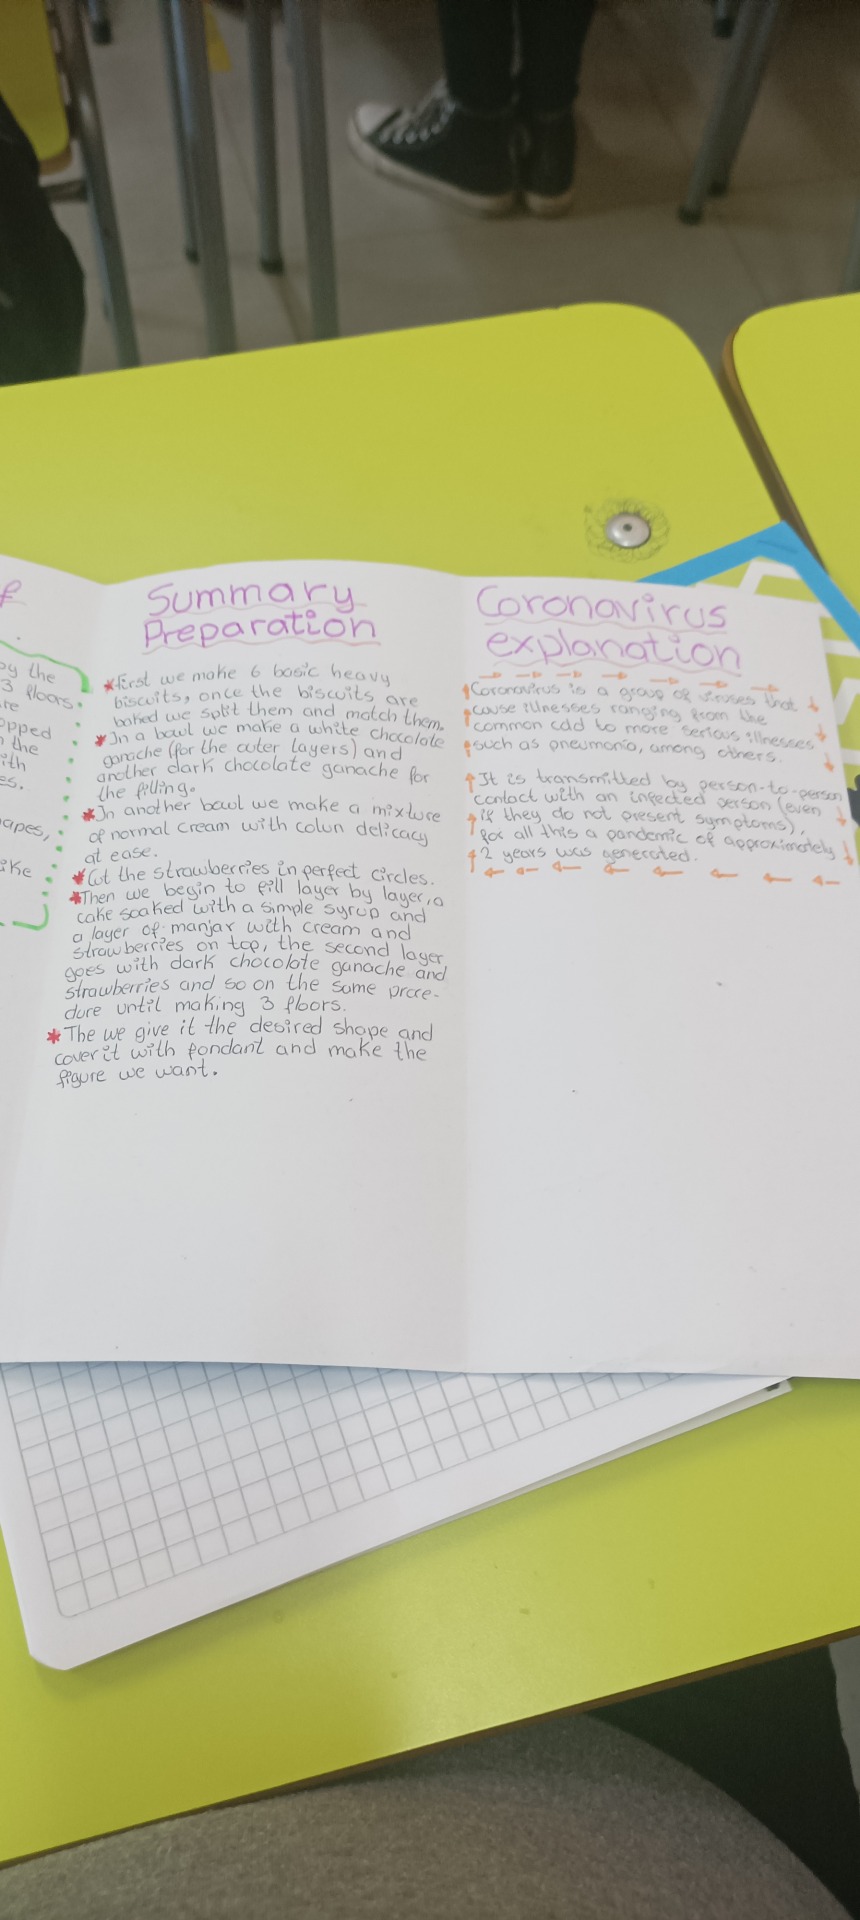 by the
3 floors.
opped
the
ith
es.
apes,
ike
Summary
Preparation
*First we make 6 basic heavy
biscuits, once the biscuits are
baked we split them and match them.
*In a bowl we make a white chocolate
ganache (for the outer layers) and
another dark chocolate ganache for
the filling.
*In another bowl we make a mixture
of normal cream with colun delicacy
at ease.
*Cut the strawberries in perfect circles.
*Then we begin to fill layer by layer, a
cake soaked with a simple syrup and
a layer of manjar with cream and
strawberries on top, the second layer
goes with dark chocolate ganache and
strawberries and so on the same proce-
dure until making 3 floors.
*The we give it the desired shape and
cover it with fondant and make the
figure we want.
Coronavirus
explanation
Coronavirus is a group of viruses that
cause illnesses ranging from the
common cdd to more serious illnesses
such as pneumonia, among others.
It is transmitted by person-to-person
contact with an infected person (even
if they do not present symptoms),
for all this a pandemic of approximately
2 years was generated.